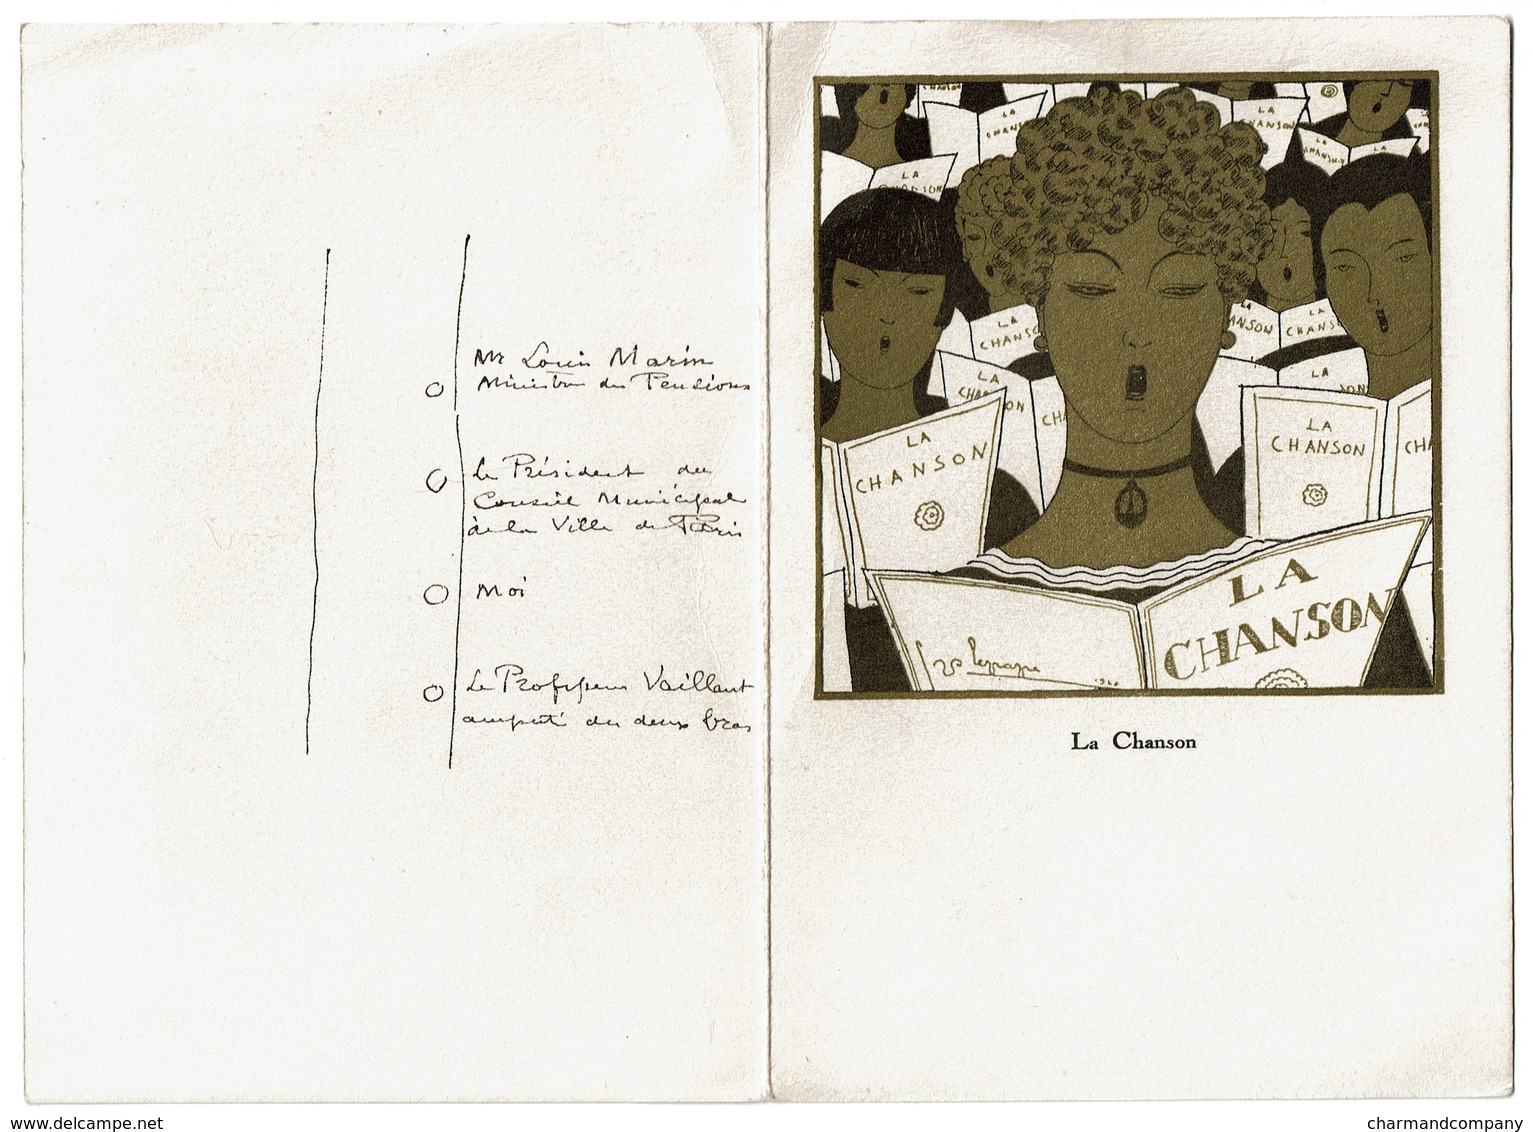 Mr Louis Marin
Ministre des Pensions
Le Président du
Conseil Municipal
de la Ville de Paris
Moi
Le Professeur Vaillant
amputé des deux bras
LA
CHANSON
LA
CHANSON
LA
CHANSON
LA
CHANSON
LA
CHANSON
LA
CHANSON
LA
CHANSON
LA
CHANSON
LA
LA
CHANSON
LA
CHANSON
LA
CHANSON
Lepape
La Chanson
www.delcampe.net
charmandcompany